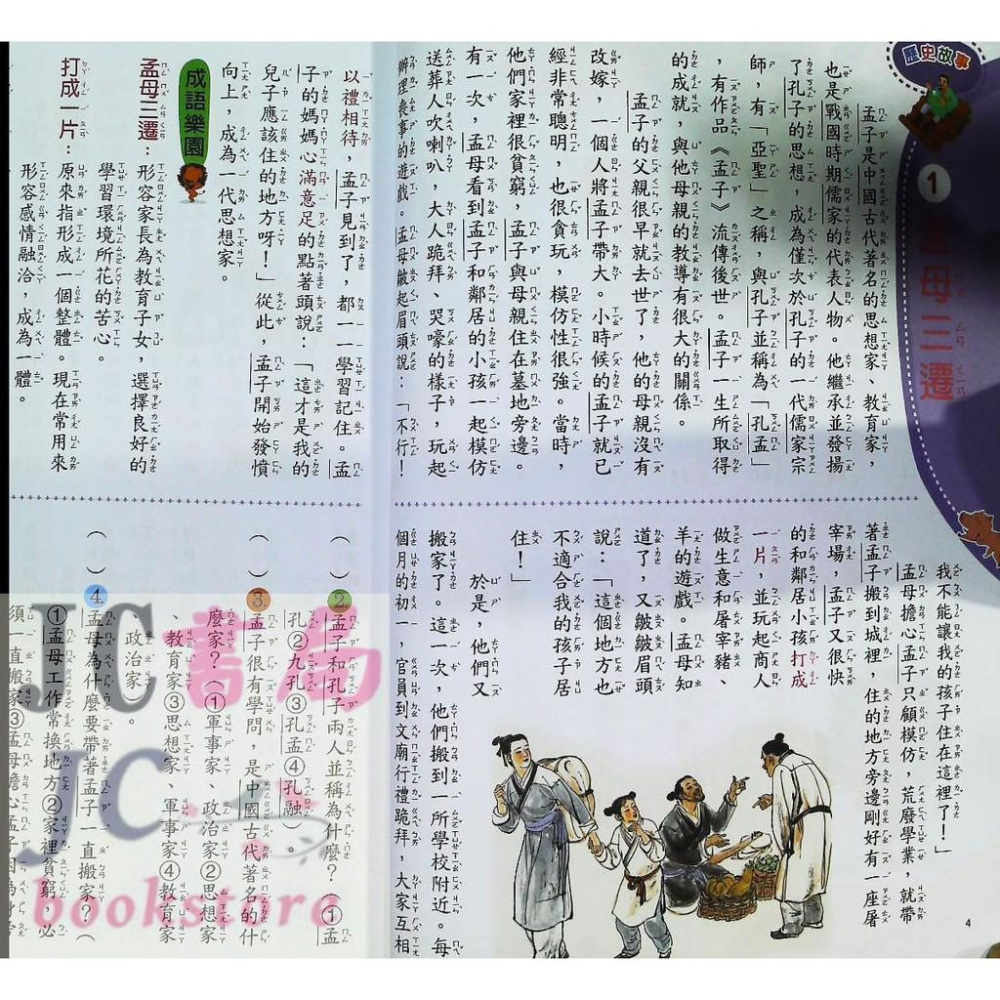 歷史故事
1 孟母三遷
孟子是中國古代著名的思想家、教育家，
也是戰國時期儒家的代表人物。他繼承並發揚
了孔子的思想，成為僅次於孔子的一代儒家宗
師，有「亞聖」之稱，與孔子並稱為「孔孟」
，有作品《孟子》流傳後世。孟子一生所取得
的成就，與他母親的教導有很大的關係。
孟子的父親很早就去世了，他的母親沒有
改嫁，一個人將孟子帶大。小時候的孟子就已
經非常聰明，也很貪玩，模仿性很強。當時，
他們家裡很貧窮，孟子與母親住在墓地旁邊。
有一次，孟母看到孟子和鄰居的小孩一起模仿
送葬人吹喇叭，大人跪拜、哭嚎的樣子，玩起
辦理喪事的遊戲。孟母皺起眉頭說：「不行！
我不能讓我的孩子住在這裡了！」
孟母擔心孟子只顧模仿，荒廢學業，就帶
著孟子搬到城裡，住的地方旁邊剛好有一座屠
宰場，孟子又很快
的和鄰居小孩打成
一片，並玩起商人
做生意和屠宰豬、
羊的遊戲。孟母知
道了，又皺皺眉頭
說：「這個地方也
不適合我的孩子居
住！」
於是，他們又
搬家了。這一次，他們搬到一所學校附近。每
個月的初一，官員到文廟行禮跪拜，大家互相
4
以禮相待，孟子見到了，都一一學習記住。孟
子的媽媽心滿意足的點著頭說：「這才是我的
兒子應該住的地方呀！」從此，孟子開始發憤
向上，成為一代思想家。
成語樂園
孟母三遷：形容家長為教育子女，選擇良好的
學習環境所花的苦心。
打成一片：原來指形成一個整體。現在常用來
形容感情融洽，成為一體。
（ ）2.孟子和孔子兩人並稱為什麼？（①孟
孔②九孔③孔孟④孔融）。
（ ）3.孟子很有學問，是中國古代著名的什
麼家？（①軍事家、政治家②思想家
、教育家③思想家、軍事家④教育家
、政治家。
（ ）4.孟母為什麼要帶著孟子一直搬家？（
①孟母工作常換地方②家裡貧窮，必
須一直搬家③孟母擔心孟子因為
JC書局
JC
bookstore